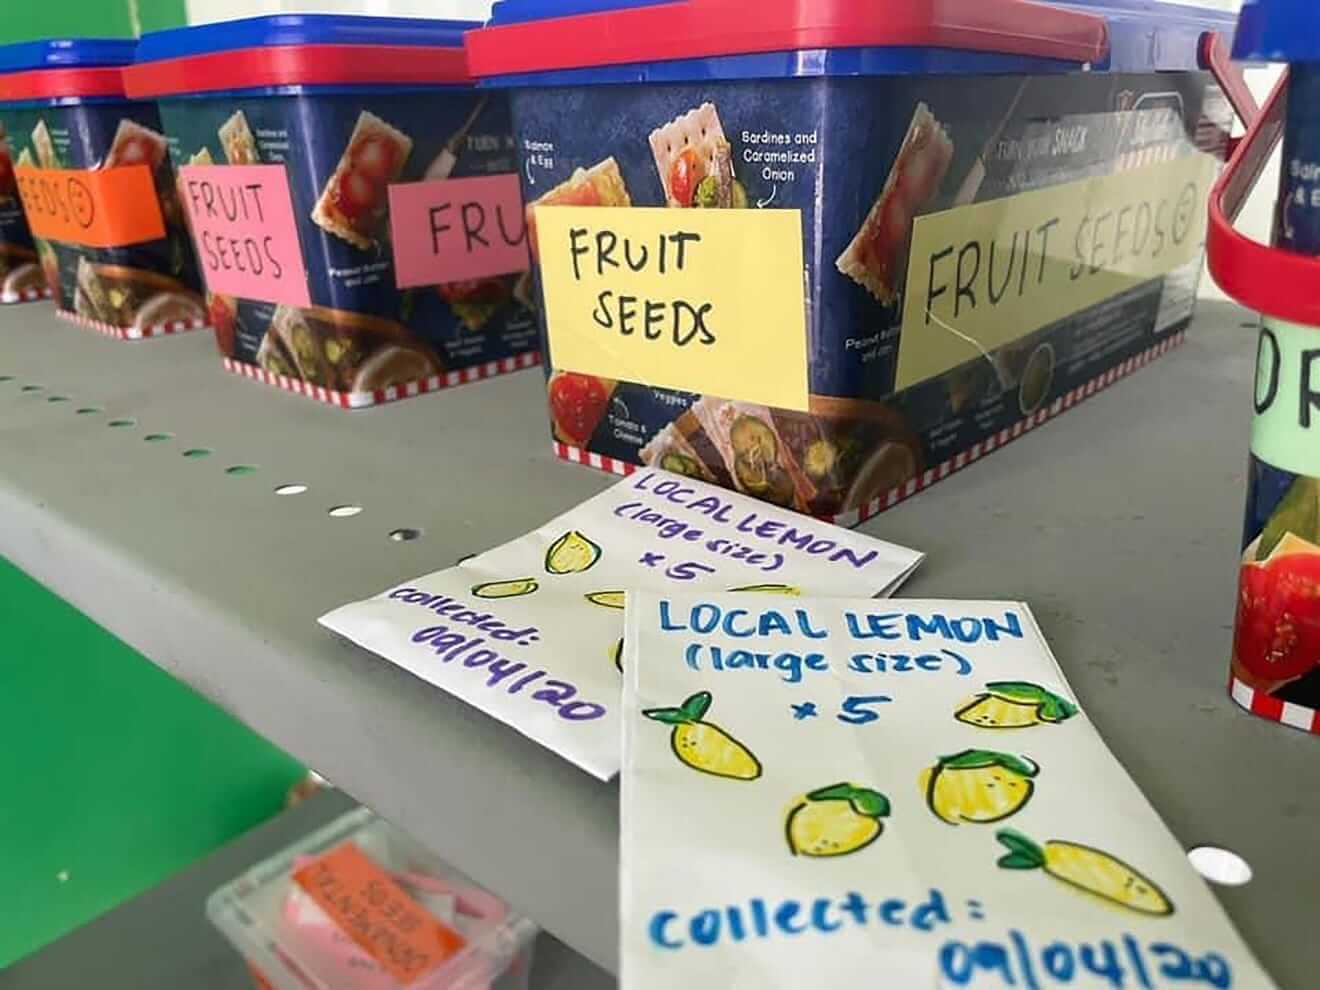 EEDS
FRUIT
SEEDS
FRU
Salmon
& Egg
Sardines and
Caramelized
Onion
FRUIT
SEEDS
Veggies
Tomato &
Cheese
SNACK
FRUIT SEEDS
OR
LOCAL LEMON
(large size)
x 5
collected:
09/04/20
LOCAL LEMON
(large size)
x 5
collected:
09/04/20
ORNAMENTAL
SEEDS